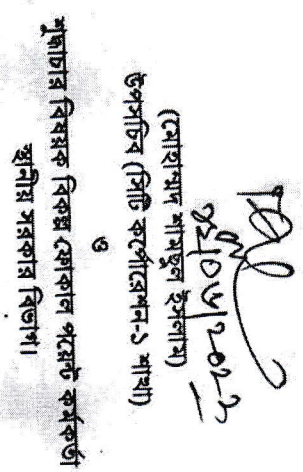 ২৫/০৫/২০২২
(মোহাম্মদ শামছুল ইসলাম)
উপসচিব (সিটি কর্পোরেশন-১ শাখা)
ও
শুদ্ধাচার বিষয়ক বিকল্প ফোকাল পয়েন্ট কর্মকর্তা
স্থানীয় সরকার বিভাগ।